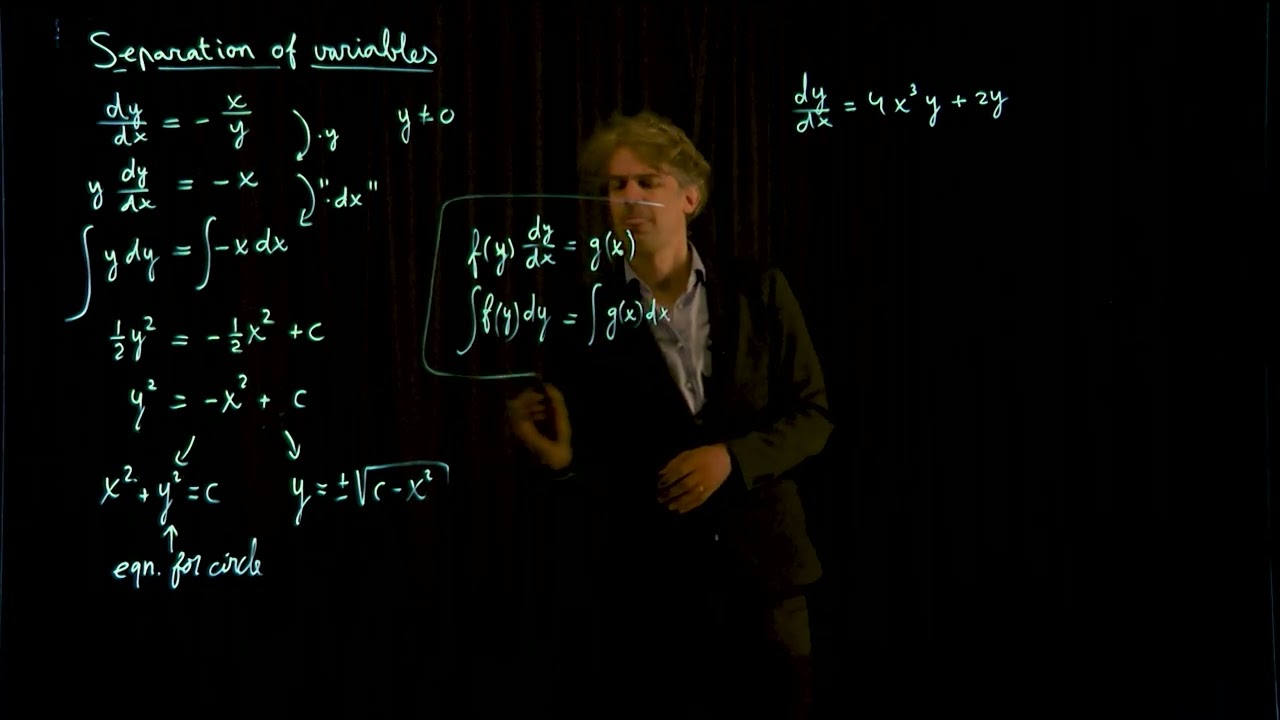 Separation of variables
dy/dx = - x/y
·y
y ≠ 0
y dy/dx = -x
"·dx"
∫ y dy = ∫ -x dx
½y² = -½x² + c
y² = -x² + c
x² + y² = c
y = ±√(c - x²)
eqn. for circle
f(y) dy/dx = g(x)
∫ f(y) dy = ∫ g(x) dx
dy/dx = 4x³y + 2y